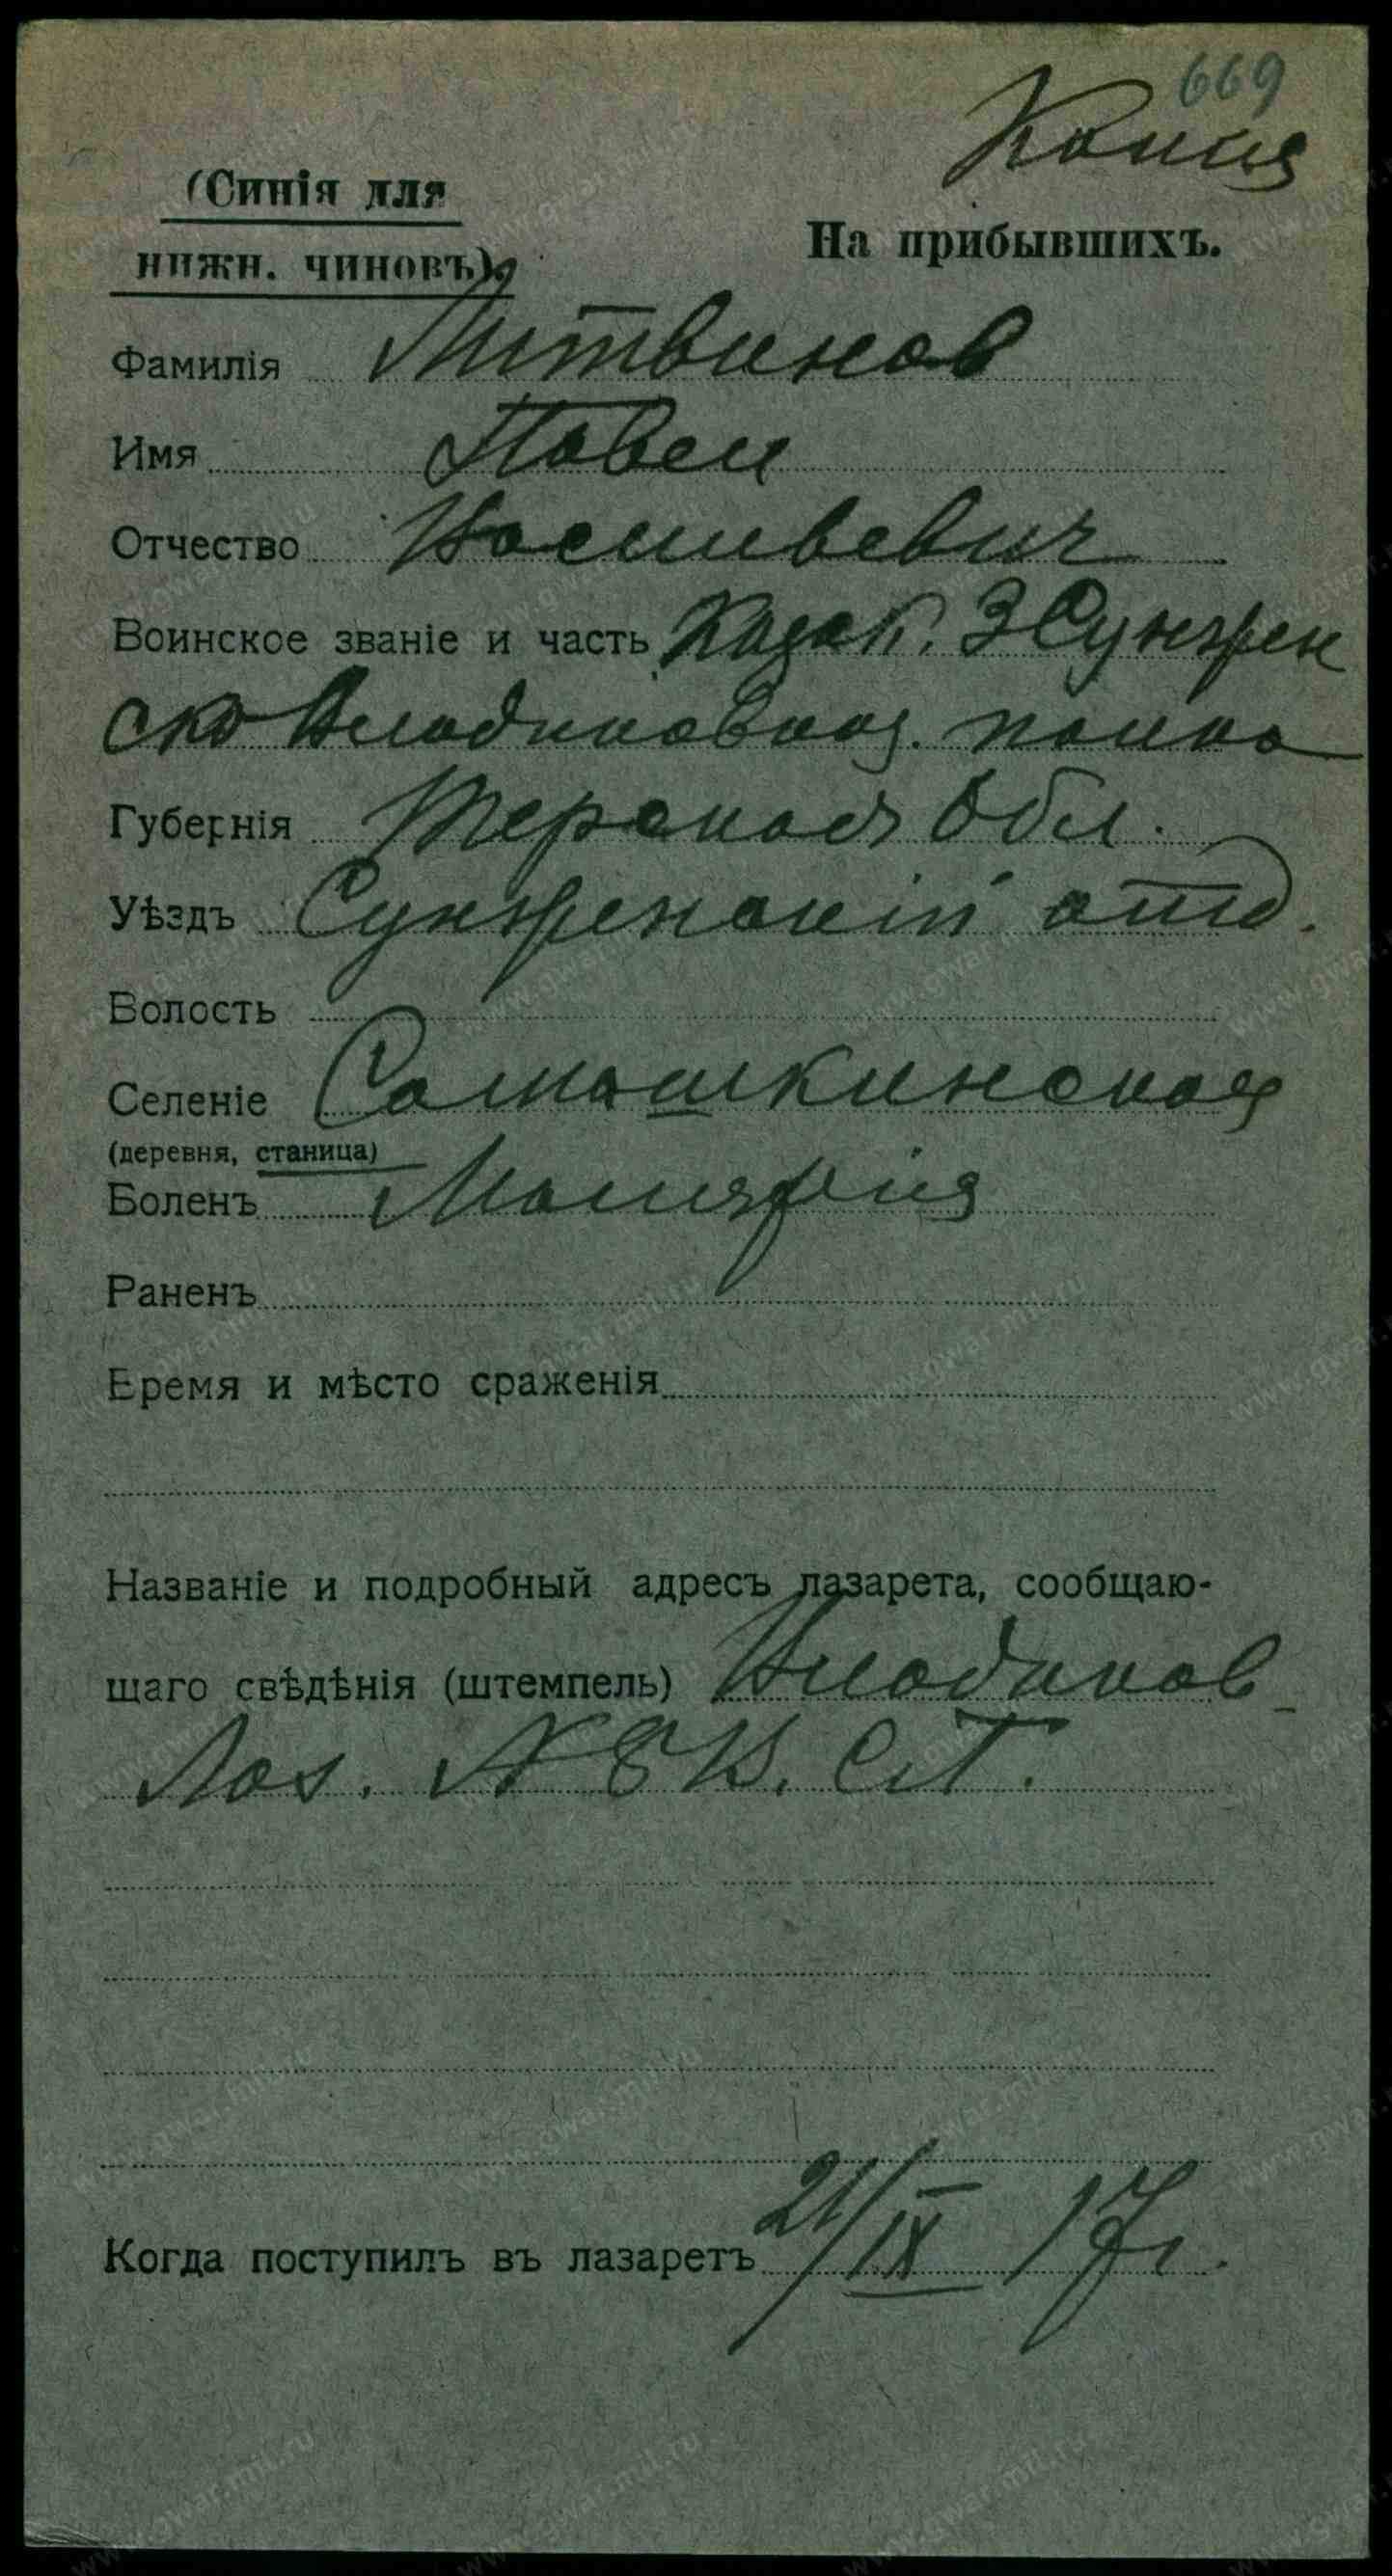 669
Копия
(Синія для
нижн. чиновъ)
На прибывшихъ.
Фамилія Литвинов
Имя Павел
Отчество Васильевич
Воинское званіе и часть Казак. 3 Сунжен
ско Владикавказ. полка
Губернія Терской Обл.
Уѣздъ Сунженскій отд.
Волость
Селеніе Самашкинской
(деревня, станица)
Боленъ Малярия
Раненъ
Время и мѣсто сраженія
Названіе и подробный адресъ лазарета, сообщаю-
щаго свѣдѣнія (штемпель) Владикав
Лаз. № В. СТ.
Когда поступилъ въ лазаретъ 21/IX 17 г.
www.gwar.mil.ru